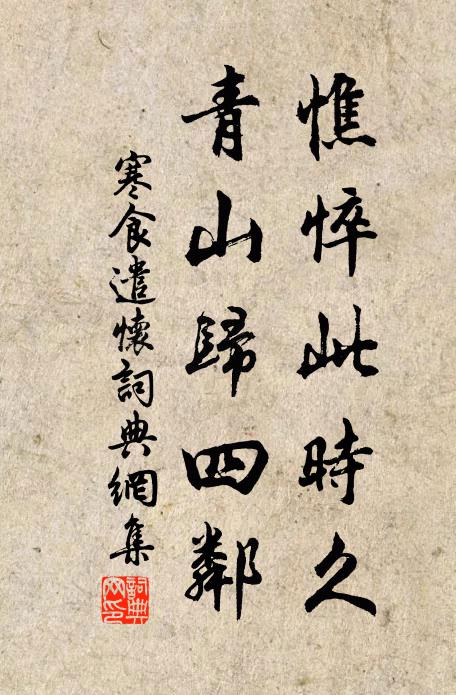 憔悴此時久
青山歸四鄰
寒食遣懷詞典網集
詞典網印